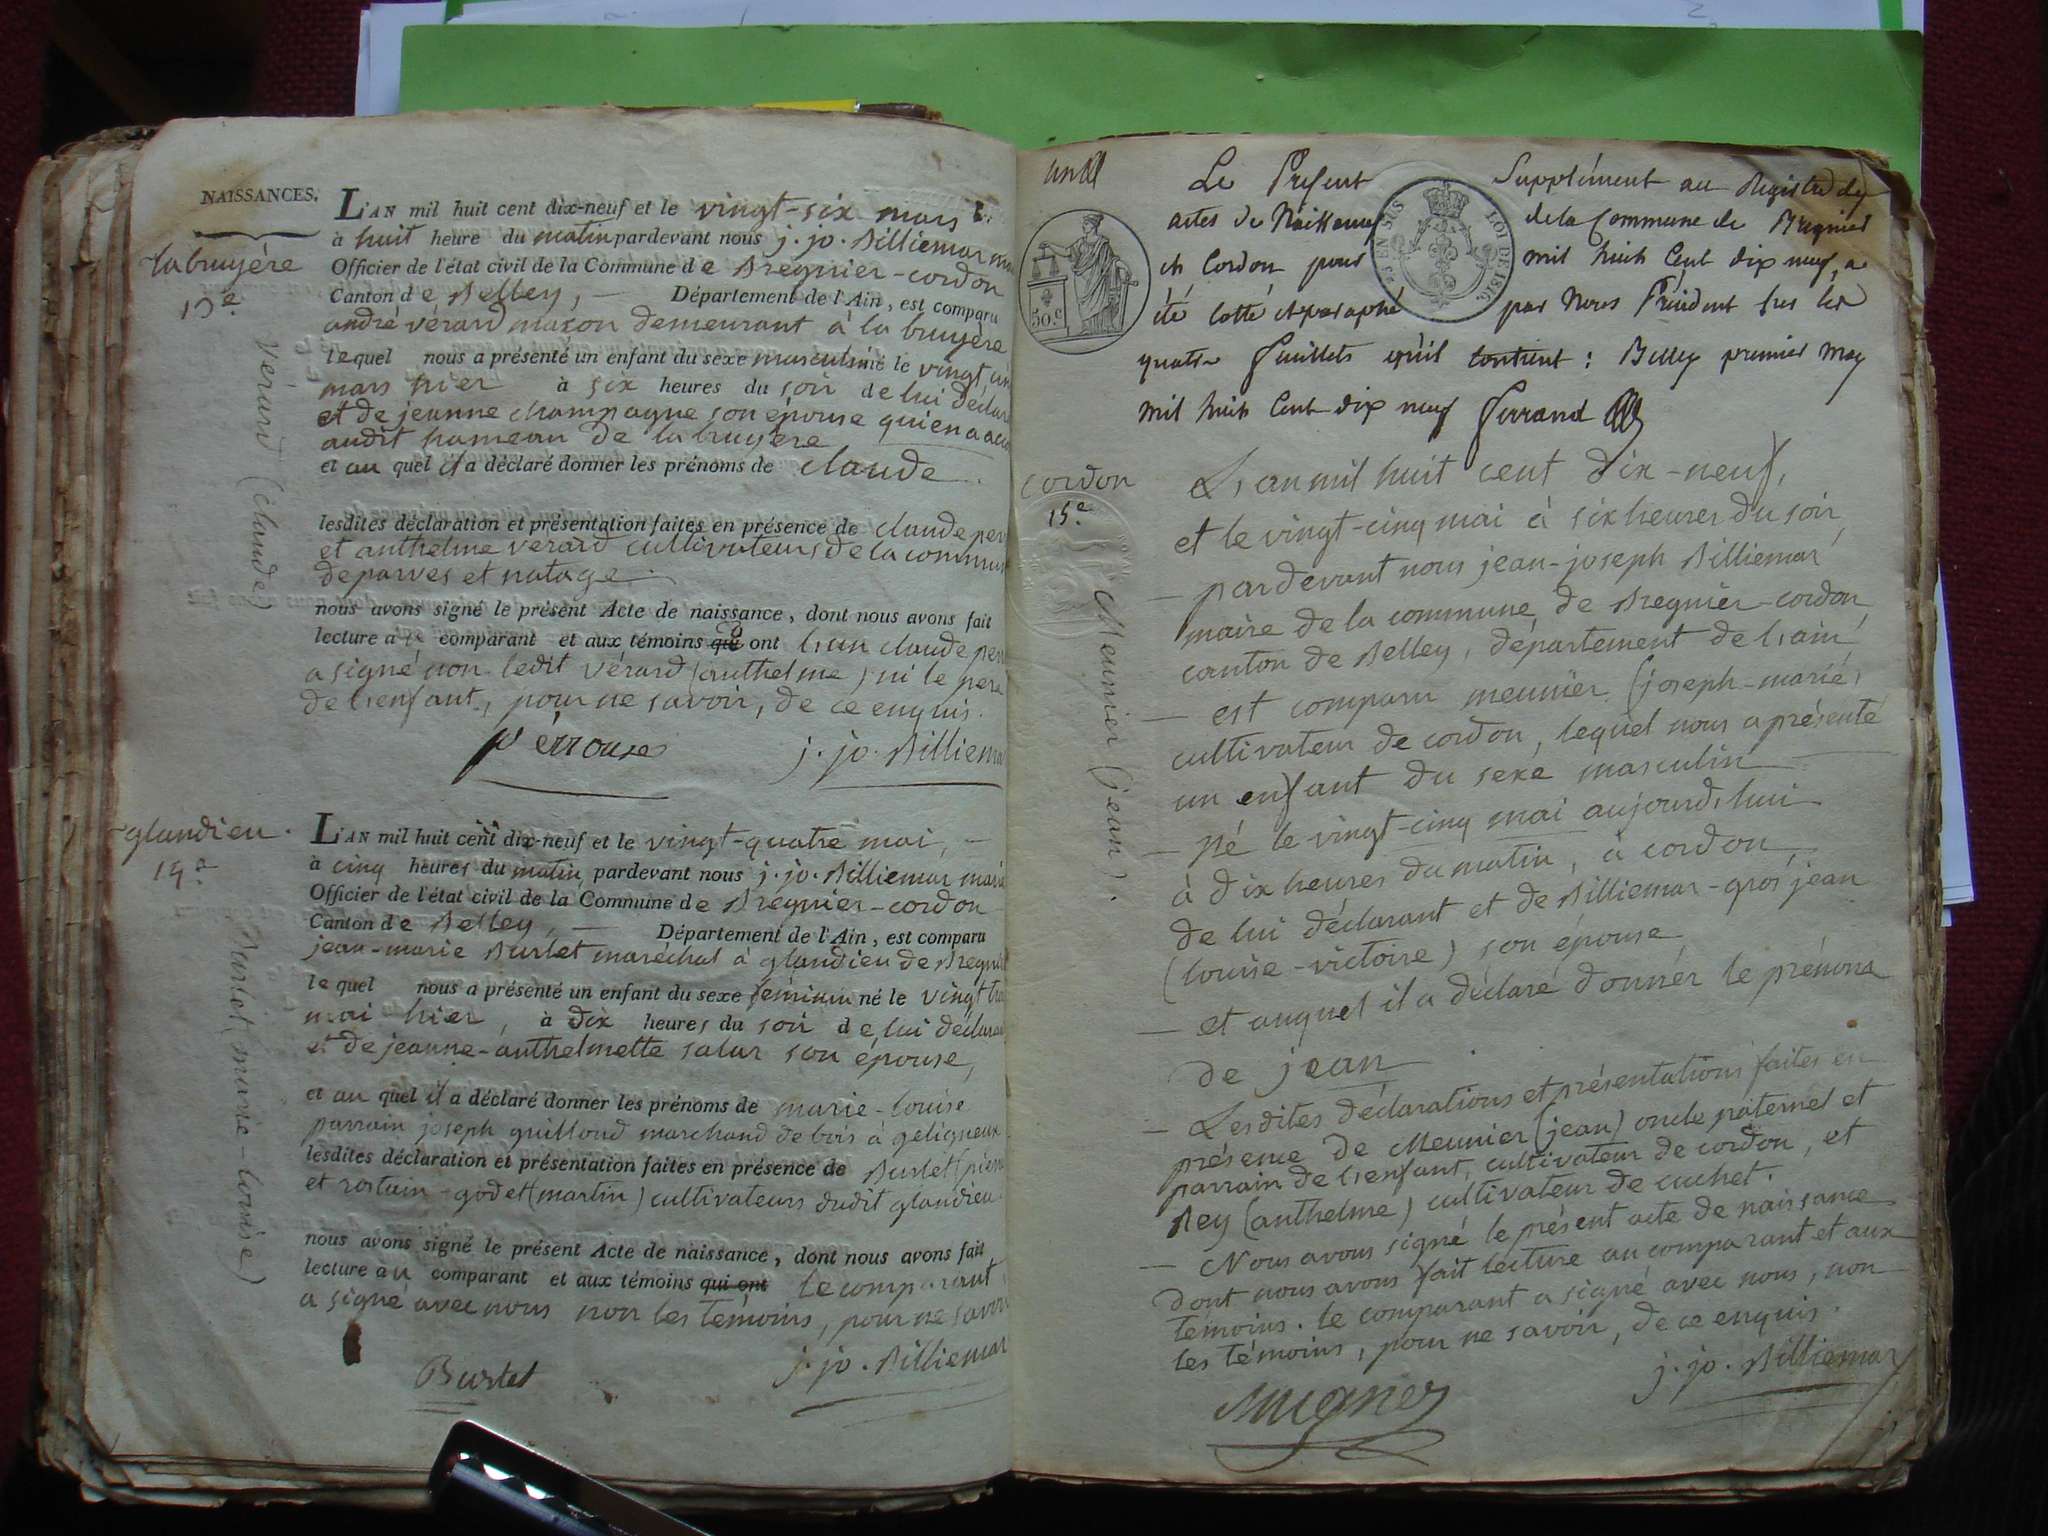 NAISSANCES.
labruyére
13.e
vérard (claude)
L'AN mil huit cent dix-neuf et le vingt-six mars
à huit heure du matin pardevant nous j. jo. Billiemar
Officier de l'état civil de la Commune de Bregnier-cordon
Canton de Belley, — Département de l'Ain, est comparu
andré vérard maxon demeurant à la bruyère
lequel nous a présenté un enfant du sexe masculin né le vingt
mars hier à six heures du soir de lui déclar
et de jeanne champagne son épouse qui en a
audit hameau de labruyere
et au quel il a déclaré donner les prénoms de claude
lesdites déclaration et présentation faites en présence de claude per
et anthelme verard cultivateurs de la commun
de parves et natage.
nous avons signé le présent Acte de naissance, dont nous avons fait
lecture a comparant et aux témoins qui ont l'un claude per
a signé non ledit vérard (anthelme) ni le pere
de l'enfant, pour ne savoir, de ce enquis.
pérrouse j. jo. Billiema
glandieu.
14.e
Burlet (marie-louise)
L'AN mil huit cent dix-neuf et le vingt-quatre mai, —
à cinq heures du matin, pardevant nous j. jo. Billiemar mair
Officier de l'état civil de la Commune de Bregnier-cordon
Canton de Belley, — Département de l'Ain, est comparu
jean-marie Burlet maréchal à glandieu de Bregni
lequel nous a présenté un enfant du sexe féminin né le vingt
mai hier, à dix heures du soir de lui déclara
et de jeanne-anthelmette salar son épouse,
et au quel il a déclaré donner les prénoms de marie-louise
parrain joseph guilloud marchand de bois à geligneux
lesdites déclaration et présentation faites en présence de Burlet (pierr
et rostain-godet (martin) cultivateurs dudit glandieu.
nous avons signé le présent Acte de naissance, dont nous avons fait
lecture au comparant et aux témoins qui ont le comparant
a signé avec nous non les témoins, pour ne savoir
Burlet j. jo. Billiemar
Le Present Supplément au Registre des
actes de Naissance de la Commune de Bregnier
et Cordon pour mil huit Cent dix neuf, a
été cotté et paraphé par Nous Président sur les
quatre feuillets qu'il contient : Belley premier May
mil huit Cent dix neuf Ferrand
50.c
EN SUS
LOI DE 1816
cordon
15.e
Meunier (jean).
L'an mil huit cent dix-neuf,
et le vingt-cinq mai à six heures du soir
— pardevant nous jean-joseph Billiemar
maire de la commune de Bregnier-cordon,
canton de Belley, département de l'ain,
— est comparu meunier (joseph-marie)
cultivateur de cordon, lequel nous a présenté
un enfant du sexe masculin
— né le vingt-cinq mai aujourd'hui
à dix heures du matin, à cordon,
de lui déclarant et de Billiemar-gros jean
(louise-victoire) son épouse
— et auquel il a déclaré donner le prénoms
de jean
— Lesdites déclarations et présentations faites en
présence de Meunier (jean) oncle paternel et
parrain de l'enfant, cultivateur de cordon, et
Rey (anthelme) cultivateur de cuchet.
— Nous avons signé le présent acte de naissance
dont nous avons fait lecture au comparant et aux
témoins. le comparant a signé avec nous, non
les témoins, pour ne savoir, de ce enquis.
j. jo. Billiemar